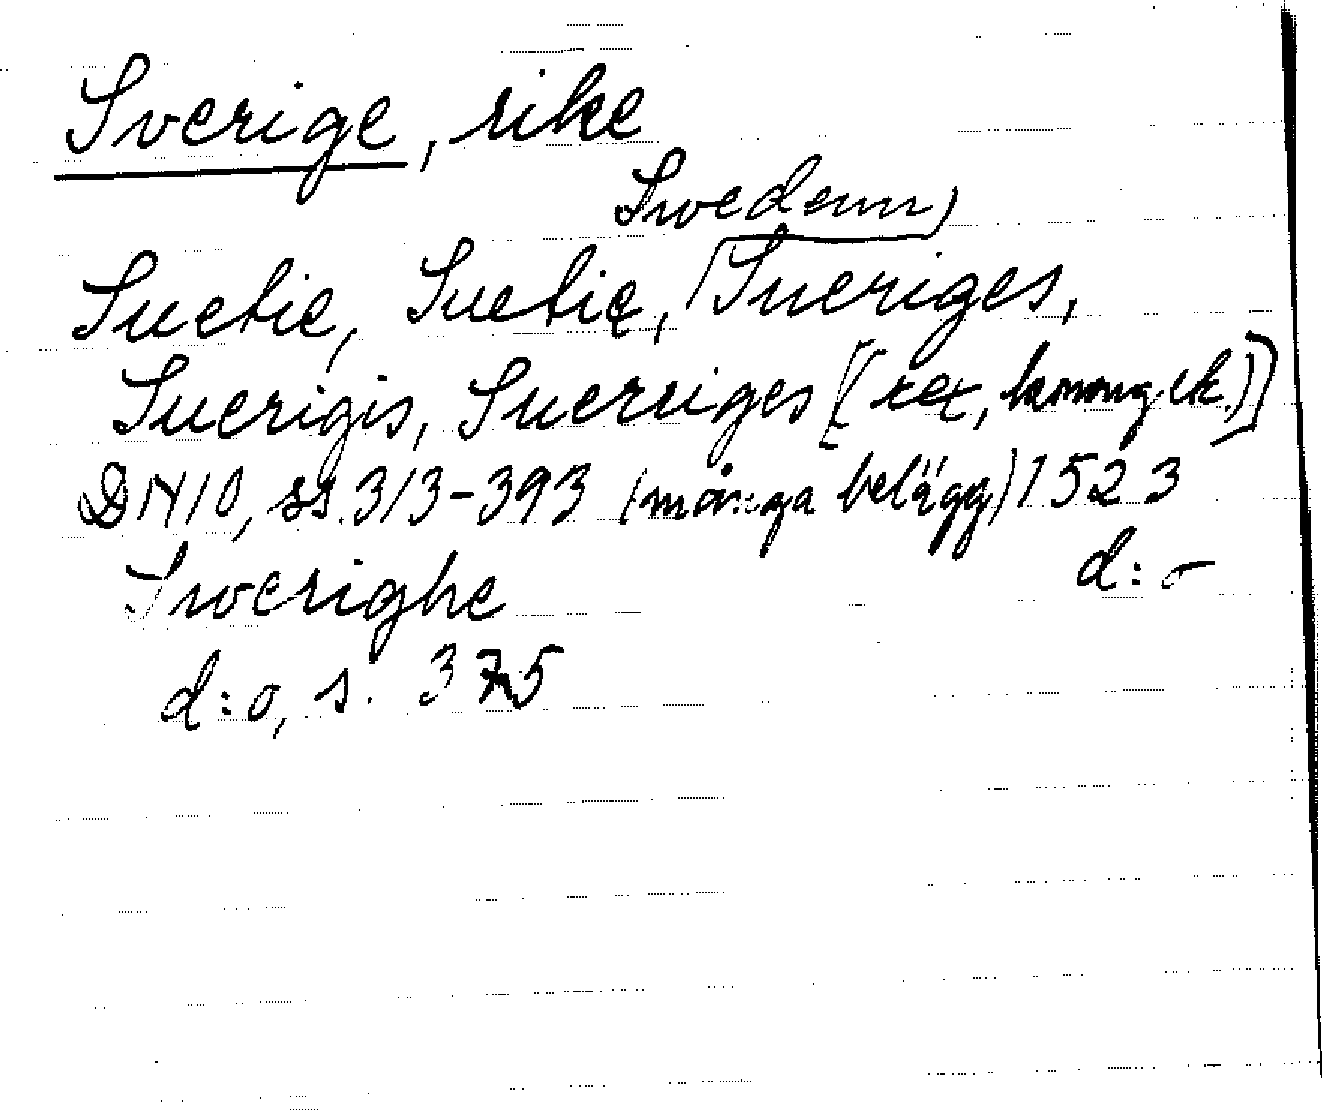 Sverige, rike
Swedenn,
Suetie, Suetię, Sueriges,
Suerigis, Suerriges [(rex, konung etc.)]
DN 10, ss. 313-393 (många belägg) 1523
Swerighe d:o
d:o, s. 375